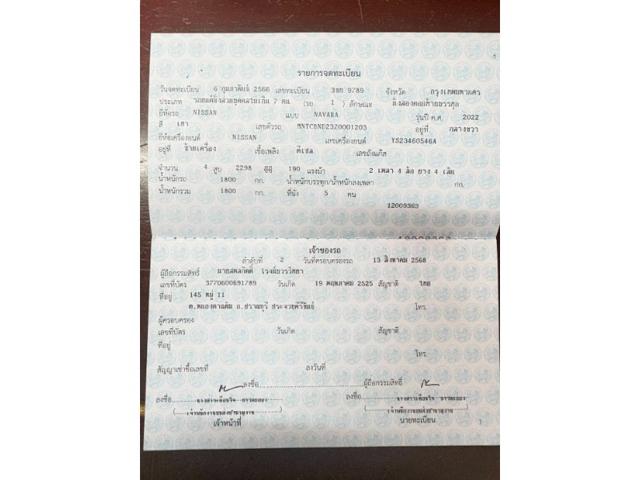 รายการจดทะเบียน
วันจดทะเบียน 6 กุมภาพันธ์ 2566 เลขทะเบียน 3ฒท 9789 จังหวัด กรุงเทพมหานคร
ประเภท รถยนต์นั่งส่วนบุคคลไม่เกิน 7 คน (รย. 1) ลักษณะ
ยี่ห้อรถ NISSAN แบบ NAVARA รุ่นปี ค.ศ. 2022
สี เทา เลขตัวรถ MNTCBND23Z0001203 อยู่ที่ กลางขวา
ยี่ห้อเครื่องยนต์ NISSAN เลขเครื่องยนต์ YS23460546A
อยู่ที่ ซ้ายเครื่อง เชื้อเพลิง ดีเซล เลขถังแก๊ส
จำนวน 4 สูบ 2298 ซีซี 190 แรงม้า 2 เพลา 4 ล้อ ยาง 4 เส้น
น้ำหนักรถ 1800 กก. น้ำหนักบรรทุก/น้ำหนักลงเพลา กก.
น้ำหนักรวม 1800 กก. ที่นั่ง 5 คน
12009363
เจ้าของรถ
ลำดับที่ 2 วันที่ครอบครองรถ 13 สิงหาคม 2568
ผู้ถือกรรมสิทธิ์
เลขที่บัตร 3770600691789 วันเกิด 19 พฤษภาคม 2525 สัญชาติ ไทย
ที่อยู่ 145 หมู่ 11
อ.ปราณบุรี ประจวบคีรีขันธ์ โทร.
ผู้ครอบครอง
เลขที่บัตร วันเกิด สัญชาติ
ที่อยู่
โทร.
สัญญาเช่าซื้อเลขที่ ลงวันที่
ลงชื่อ ผู้ถือกรรมสิทธิ์
ลงชื่อ ลงชื่อ
เจ้าหน้าที่ นายทะเบียน